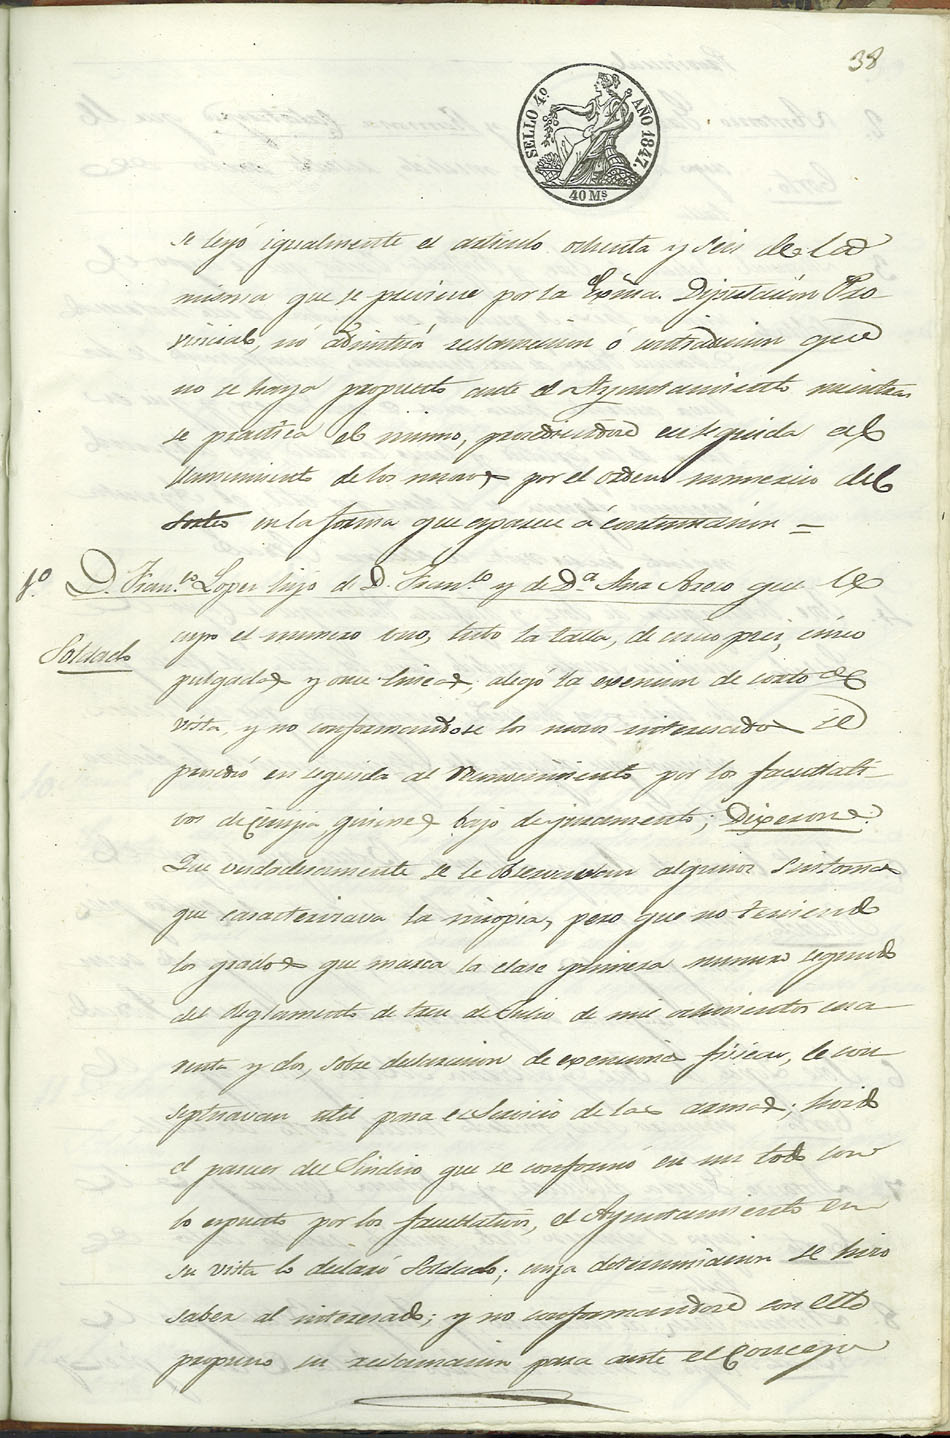 38
SELLO 4º AÑO 1847.
40 Ms
se leyó igualmente el articulo ochenta y seis de la
misma que se previene por la Exma. Diputación Pro-
vincial, nó admitirá reclamacion ó contradicion que
no se haya propuesto ante el Ayuntamiento mientras
se practica el mismo, procediendose en seguida al
llamamiento de los mozos por el orden numerico del
Sorteo en la forma que aparece á continuacion =
1º D. Franco Lopez hijo de D. Franco y de Da Ana que le
cupo el numero uno, tubo la talla, de cinco pies, cinco
Soldado
pulgadas y once lineas, alegó la exencion de corto de
vista, y no conformandose los mozos interesados se
procedió en seguida al reconocimiento por los facultati-
vos de Cirujia quienes bajo de juramento; Dixeron:
Que verdaderamente se le observavan algunos sintomas
que caracterizava la miopia, pero que no teniendo
los grados que marca la clase primera numero segundo
del Reglamento de trece de Julio de mil ochocientos cua-
renta y dos, sobre declaracion de exenciones fisicas, le con-
septuavan util para el Servicio de las armas; hoido
el parecer del Sindico que se conformó en un todo con
lo expuesto por los facultativos, el Ayuntamiento en
su vista lo declaró Soldado; cuya determinacion se hizo
saber al interesado; y no conformandose con ello
propuso su reclamacion para ante el Consejo